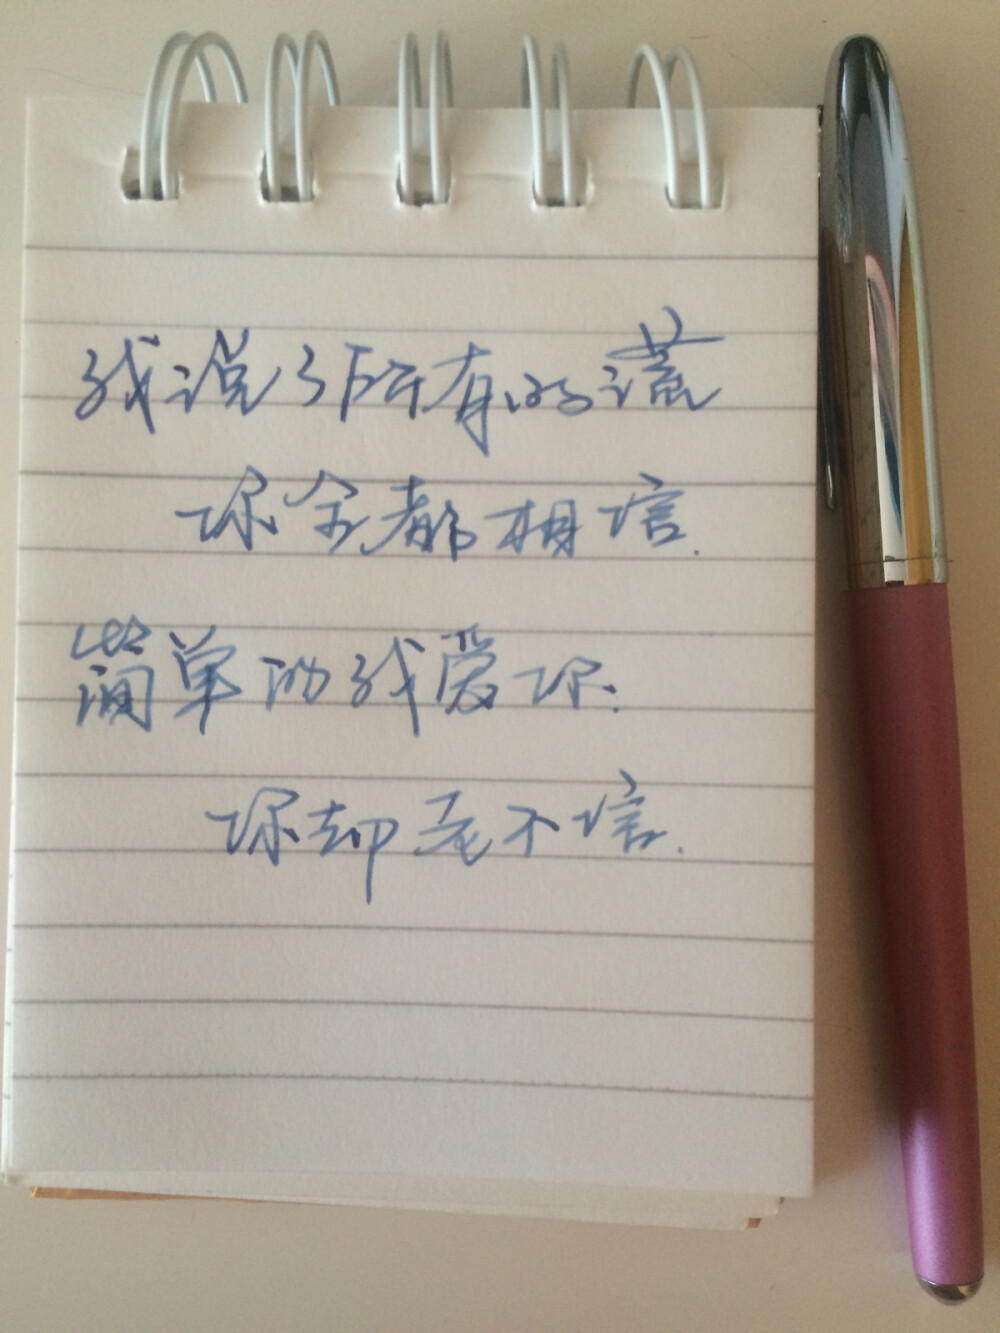 我说了所有的谎
你全都相信.
简单的我爱你.
你却老不信.